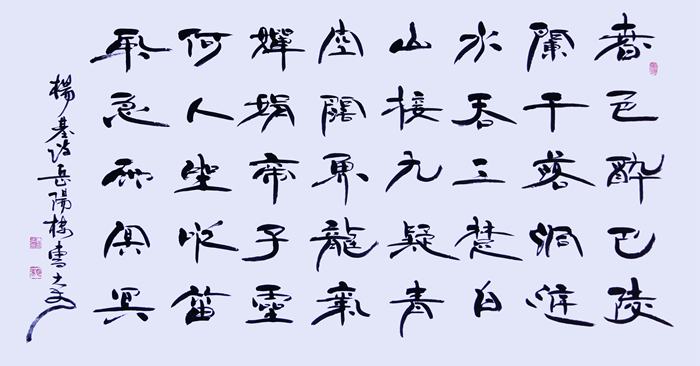 春色醉巴陵
闌干落洞庭
水吞三楚白
山接九疑青
空闊魚龍氣
嬋娟帝子靈
何人坐吹笛
風急雨冥冥
楊基詩岳陽樓